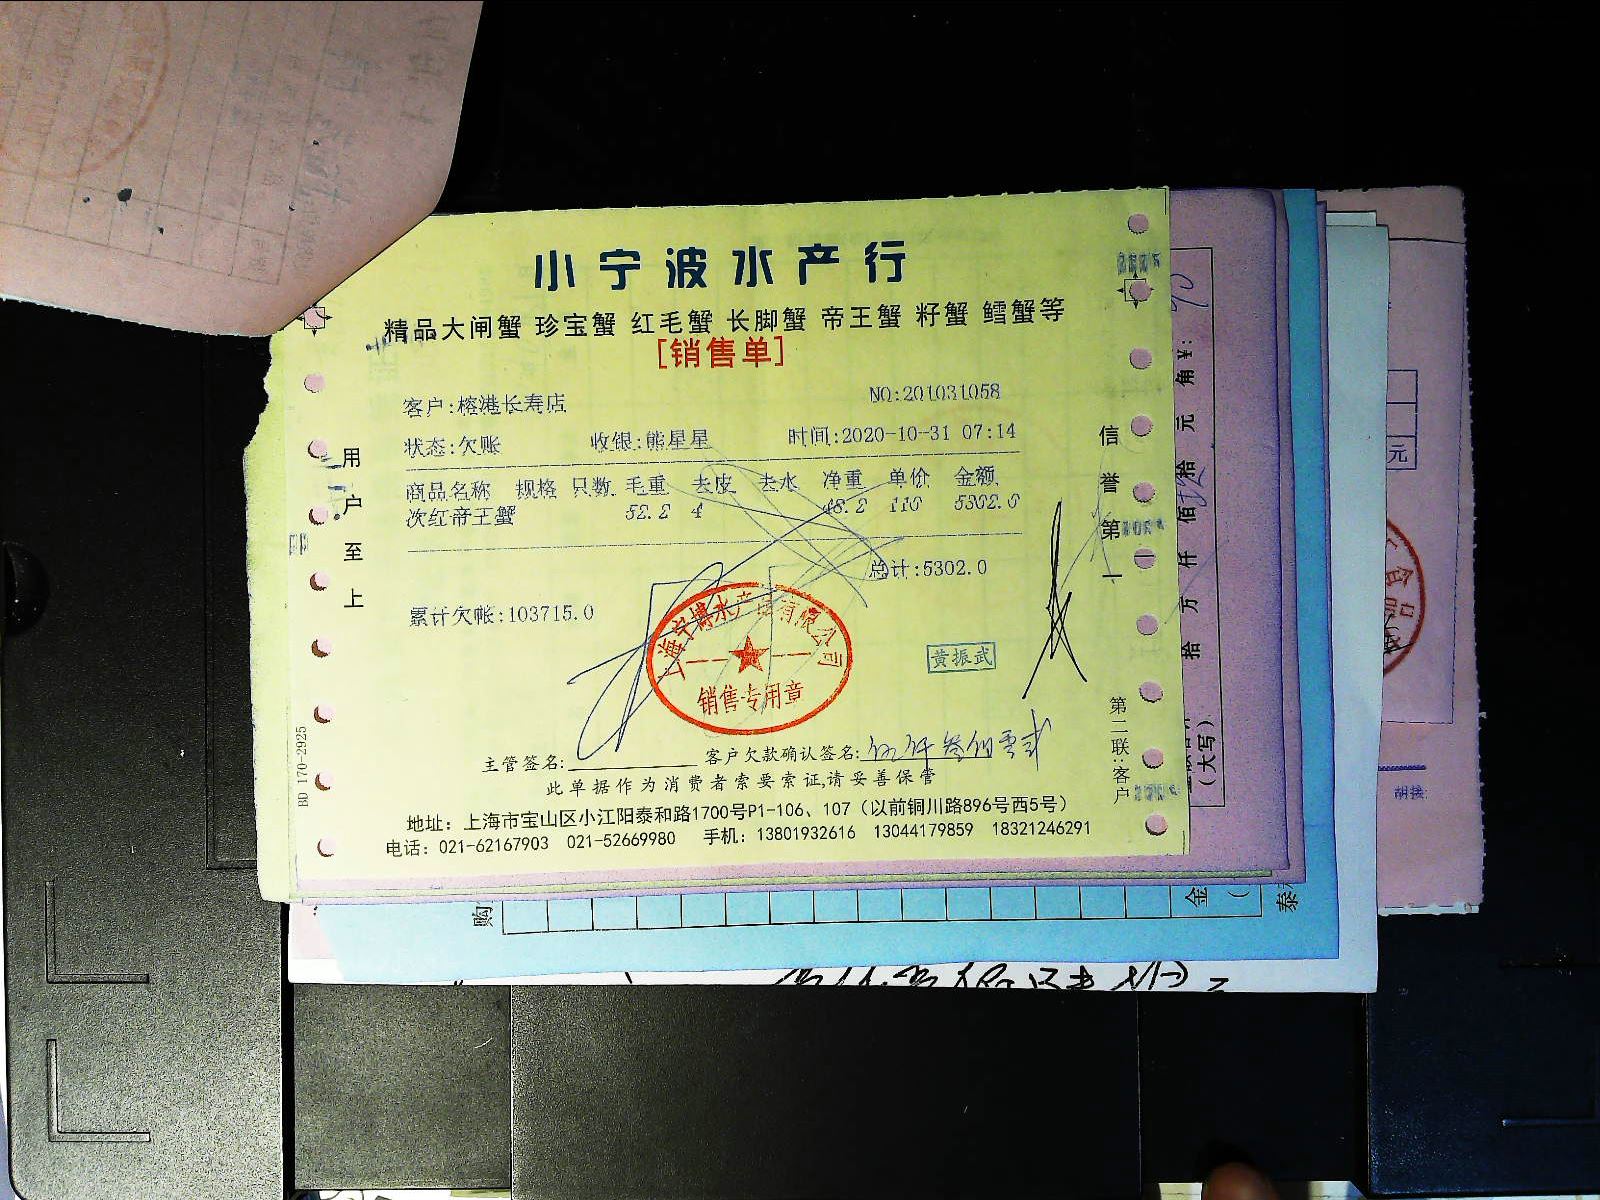 小宁波水产行
精品大闸蟹 珍宝蟹 红毛蟹 长脚蟹 帝王蟹 籽蟹 鳕蟹等
[销售单]
客户:榕港长寿店 NO:201031058
状态:欠账 收银:熊星星 时间:2020-10-31 07:14
商品名称 规格 只数 毛重 去皮 去水 净重 单价 金额
次红帝王蟹 52.2 4 48.2 110 5302.0
总计:5302.0
累计欠帐:103715.0
上海宁博水产品有限公司
销售专用章
黄振武
主管签名: 客户欠款确认签名:伍仟叁佰零贰
此单据作为消费者索要索证,请妥善保管
地址：上海市宝山区小江阳泰和路1700号P1-106、107（以前铜川路896号西5号）
电话：021-62167903 021-52669980 手机：13801932616 13044179859 18321246291
用户至上
信誉第一
第二联:客户
BD 170-2925
拾 万 仟 佰 拾 元 角 ¥:
(大写)
元
胡接:
购
金
泰